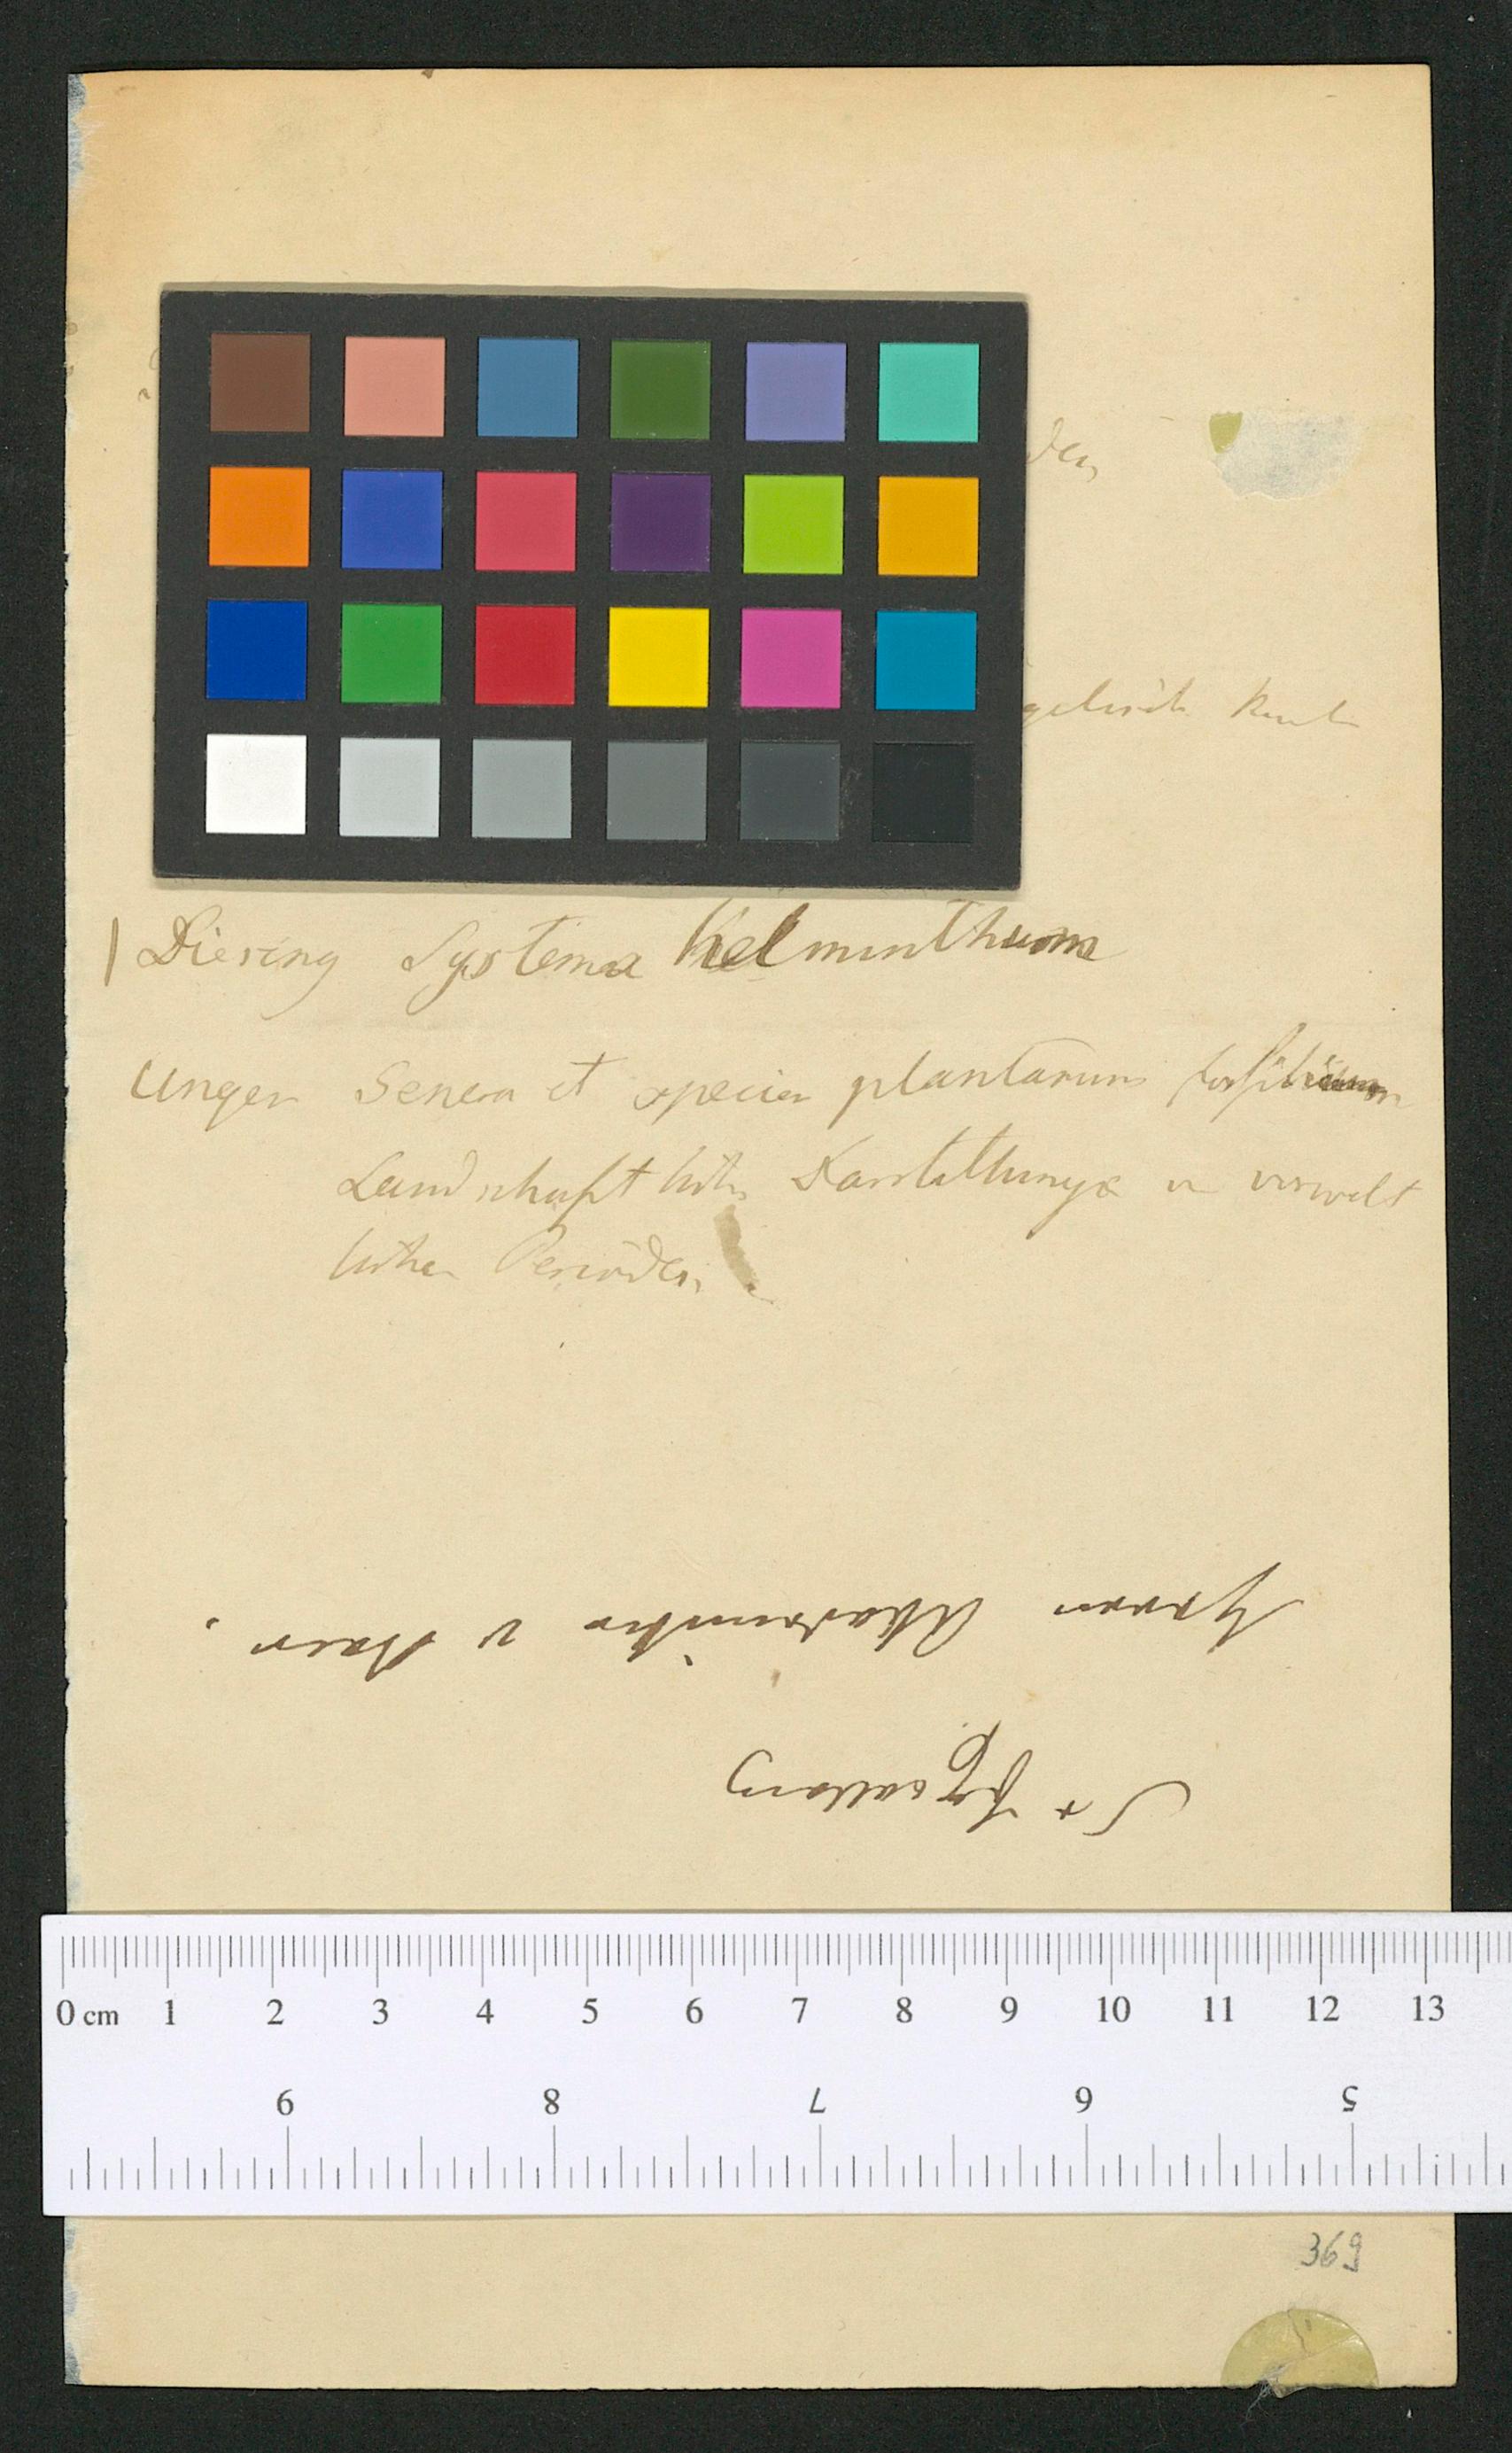 den
Diesing Systema helminthum
Unger Genera et species plantarum fossilium
Landschaftliche Darstellunge v vorwelt
lichen Perioden
Herrn Akademiker v Baer.
0 cm 1 2 3 4 5 6 7 8 9 10 11 12 13
9 8 7 6 5
369